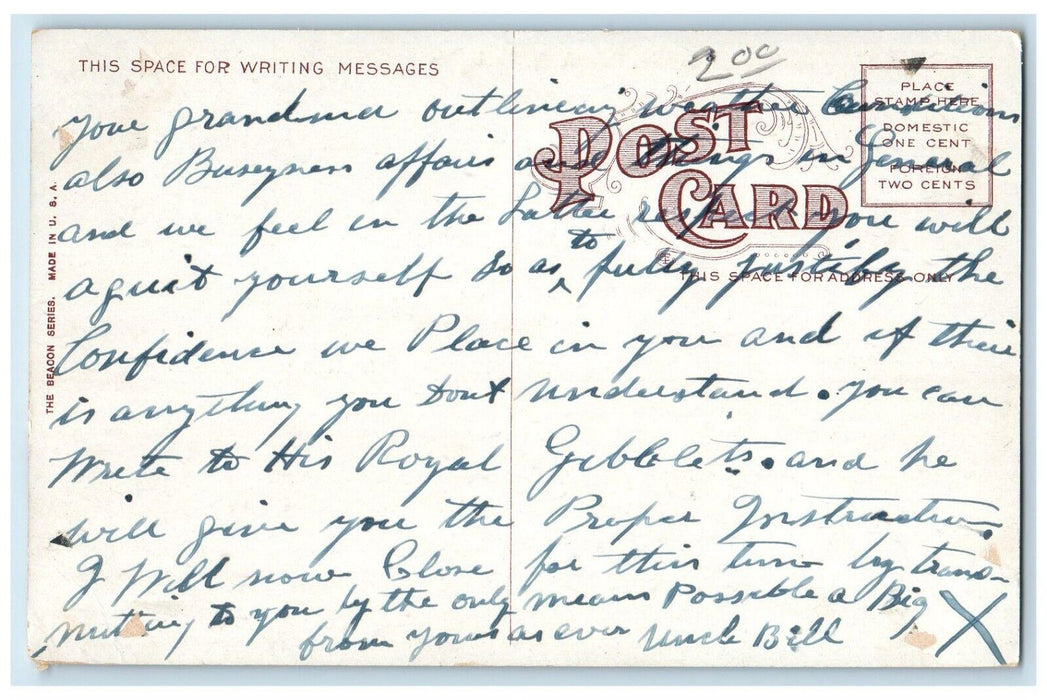 2.00
THIS SPACE FOR WRITING MESSAGES
POST CARD
PLACE
STAMP HERE
DOMESTIC
ONE CENT
FOREIGN
TWO CENTS
THIS SPACE FOR ADDRESS ONLY
THE BEACON SERIES. MADE IN U. S. A.
your grandma outlineing weather Conditions
also Buseyness affairs and things in General
and we feel in the Latter respect you will
aquit yourself so as to fully justify the
Confidence we Place in you and if their
is anything you Dont understand. you can
Write to His Royal Gibblets. and he
will give you the Proper Instruction.
I Will now Close for this time by trans-
mitting to you by the only means Possible a Big X
from yours as ever Uncle Bill